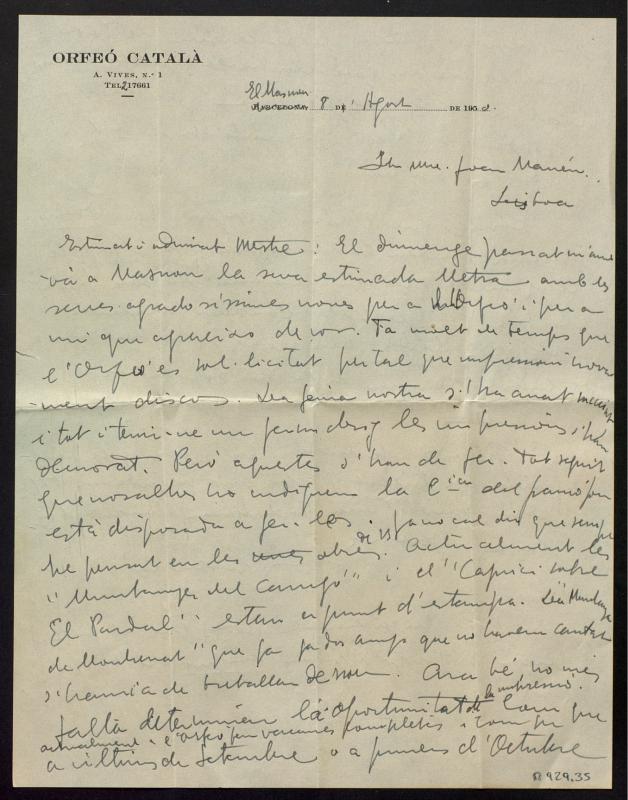 ORFEÓ CATALÀ
A. VIVES, N.º 1
TEL. 217661
El Masnou
BARCELONA, 8 DE Agost DE 195
Joan Manén.
Lisboa
Estimat i admirat Mestre: El diumenge passat m'arri-
và a Masnou la seva estimada lletra amb les
seves agradosíssimes noves per a l'Orfeó i per a
mi que aprecio de cor. Fa molt de temps que
l'Orfeó és sol·licitat per tal que impressioni nova-
ment discos. La feina nostra s'ha anat
i tot i tenir-ne un ferm desig les impressions s'han
demorat. Però aquestes s'han de fer. Tot seguit
que nosaltres ho indiquem la Cia. del gramòfon
està disposada a fer-les. I ja no cal dir que sempre
he pensat en les obres de Vs. Actualment les
"Muntanyes del Canigó" i el "Caprici sobre
El Pardal" estan a punt d'estampa. La "
de Montserrat" que ja fa dos anys que no havem cantat
s'hauria de treballar de nou. Ara bé no més
falla determinar la oportunitat de la impressió. Com que
actualment l'Orfeó fa vacances completes i com
a últims de Setembre o a primers d'Octubre
M 929.35